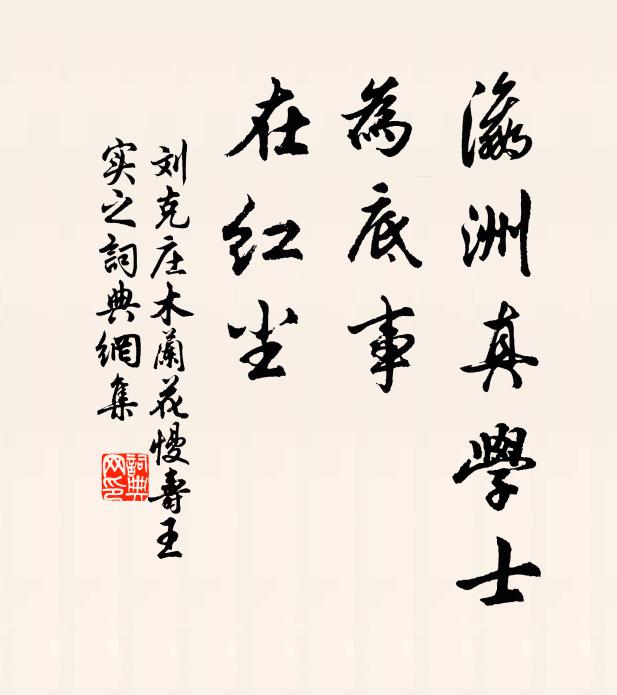 瀛洲真學士
為底事
在红尘
刘克庄木蘭花慢壽王
实之詞典網集
詞典
网印